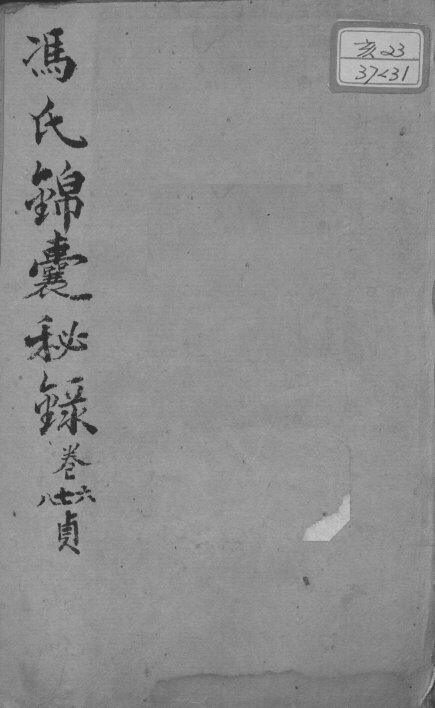 馮氏錦囊秘錄卷
六七八
貞
亥23
37<31